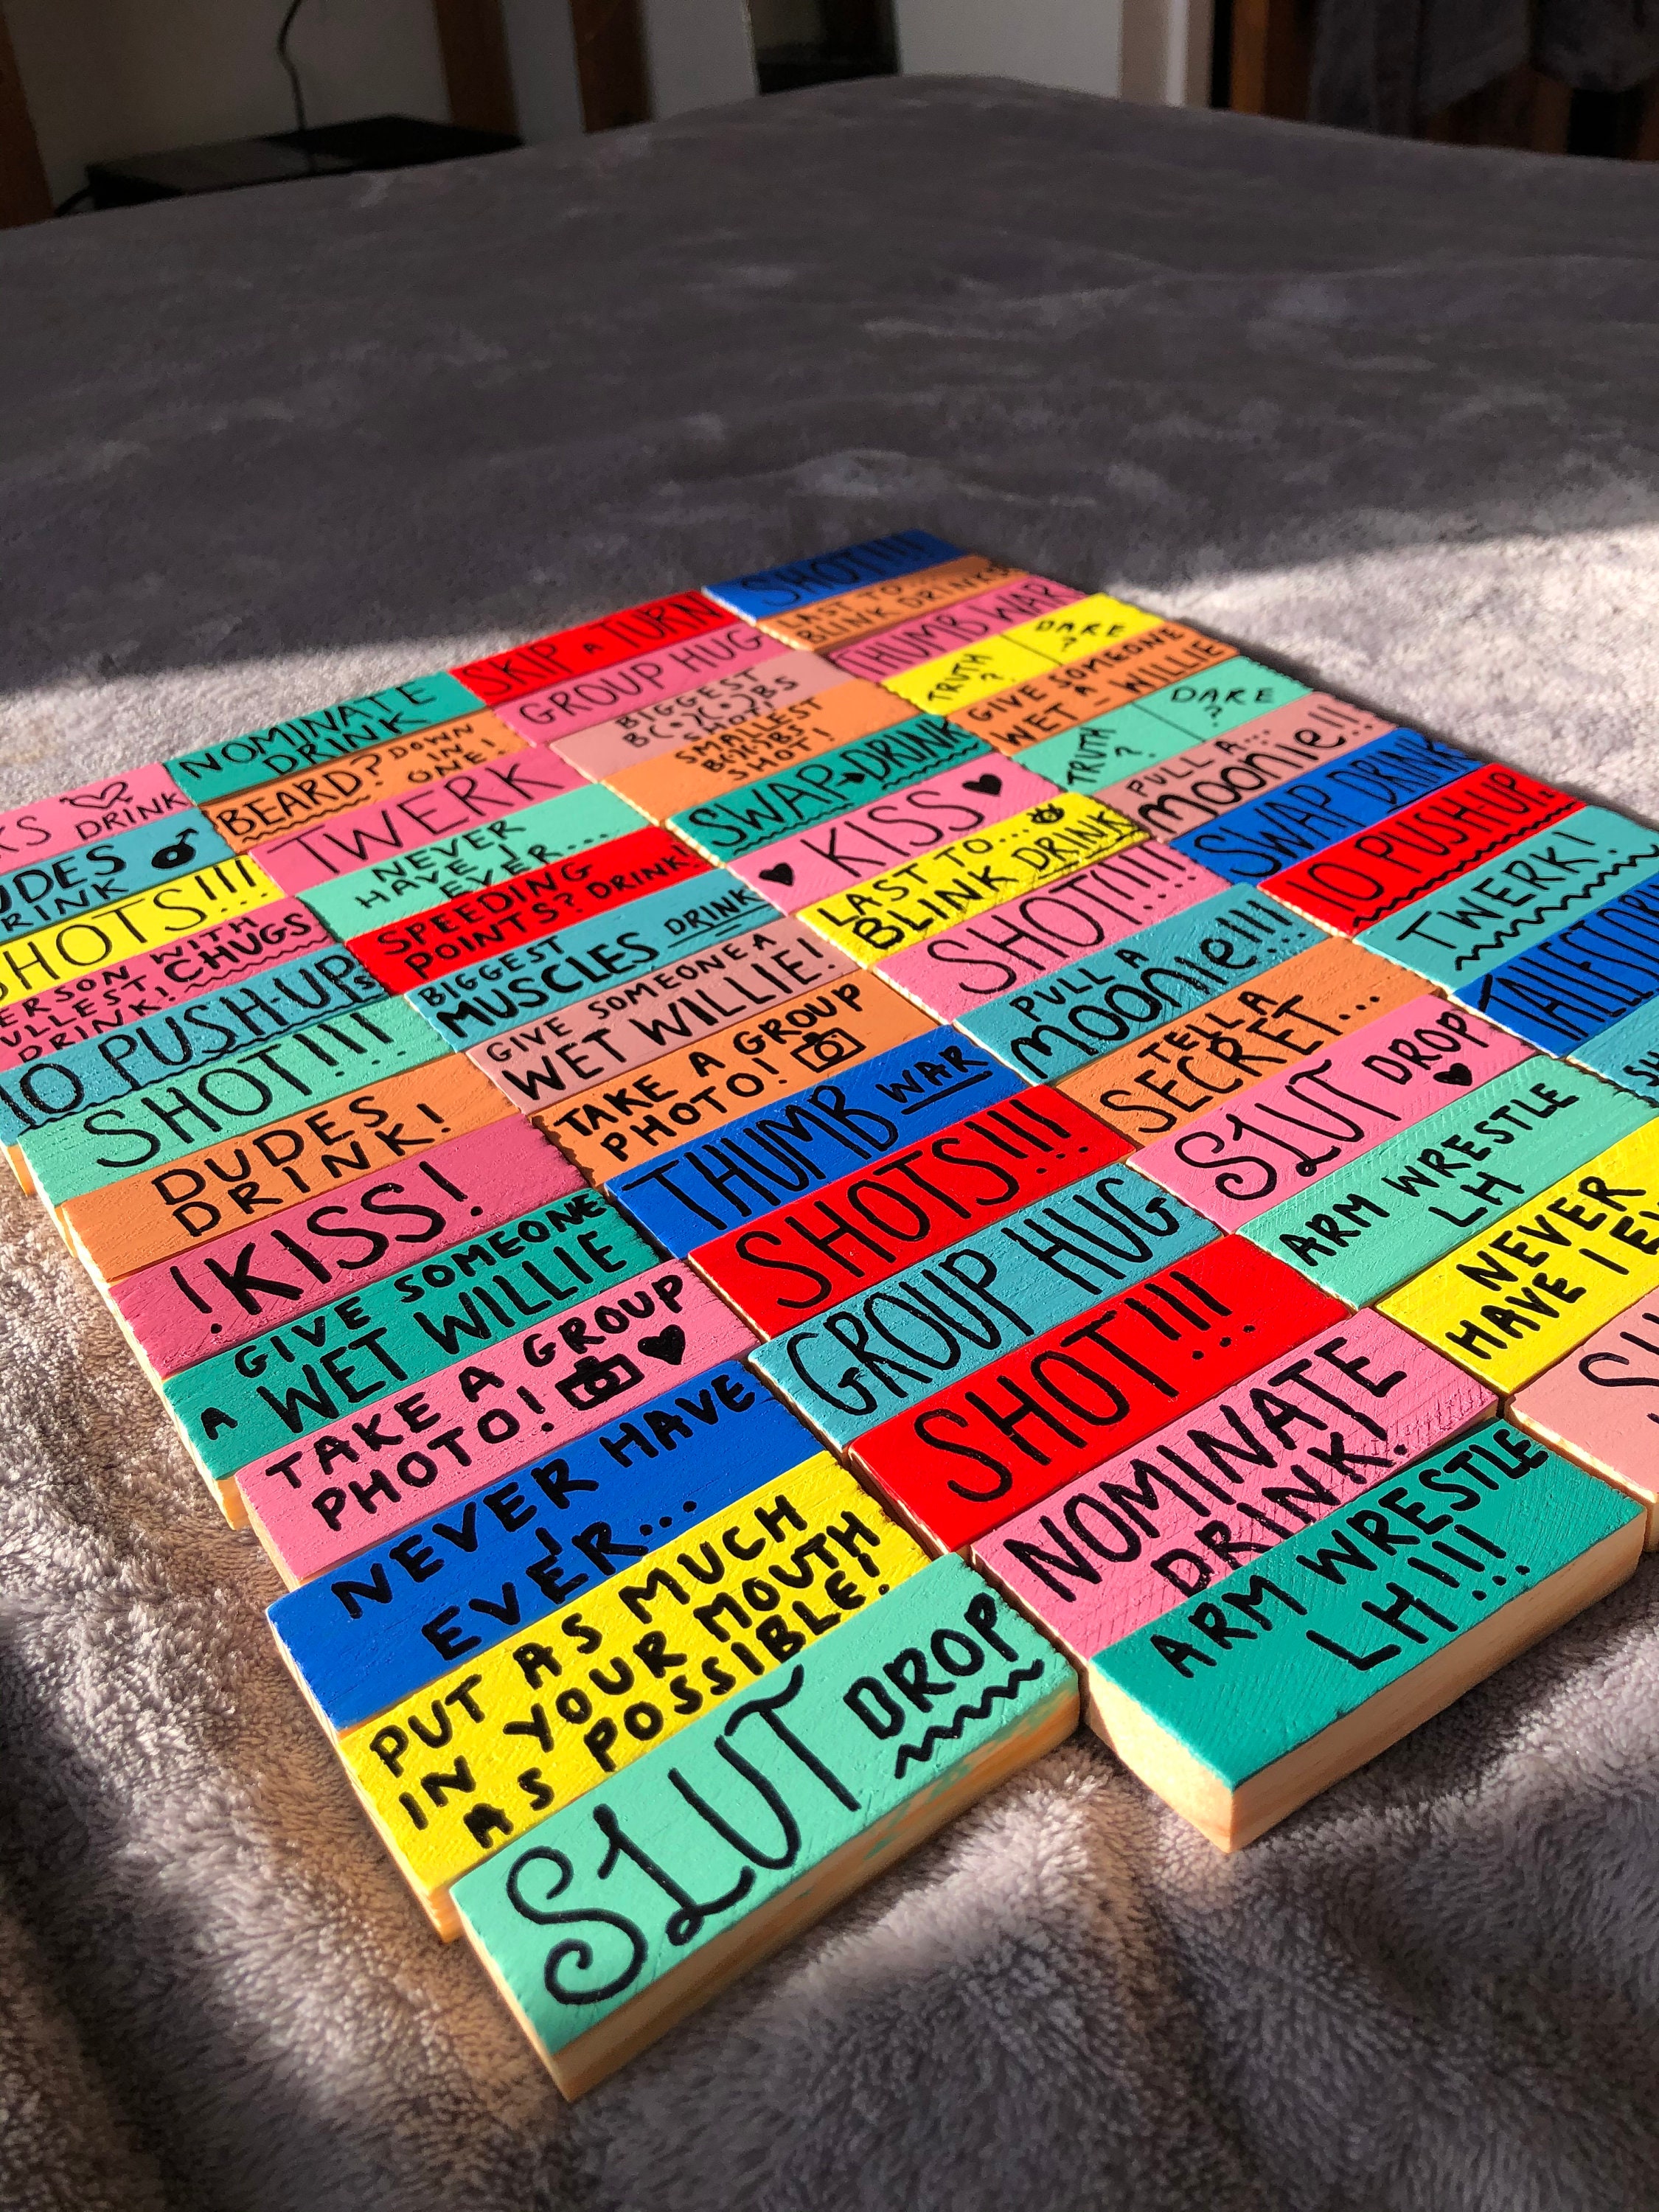 SHOT!!!
LAST TO...
BLINK DRINKS
THUMB WAR
TRUTH ? DARE ?
GIVE SOMEONE
WET A WILLIE
TRUTH ? DARE ?
PULL A...
MOONIE!!
SWAP DRINK
10 PUSH-UPS
TWERK!
TALLEST
SKIP A TURN
GROUP HUG
BIGGEST
B(•)(•)BS
SHOT!
SMALLEST
B(•)(•)BS
SHOT!
SWAP DRINK
KISS
LAST TO...
BLINK DRINK
SHOT!!!!
PULL A
MOONIE!!!
TELL A
SECRET...
SLUT DROP
ARM WRESTLE
LH
NEVER
HAVE I
NOMINATE
DRINK
BEARD? DOWN
IN
ONE!
TWERK
NEVER
HAVE I
EVER...
SPEEDING
POINTS? DRINK!
BIGGEST
MUSCLES DRINK
GIVE SOMEONE A
WET WILLIE!
TAKE A GROUP
PHOTO!
THUMB WAR
SHOTS!!!!
GROUP HUG
SHOT!!!
NOMINATE
DRINK.
ARM WRESTLE
LH!!!
DRINK
SHOTS!!!
WITH
CHUGS
DRINK!
10 PUSH-UPS
SHOT!!!
DUDES
DRINK!
!KISS!
GIVE SOMEONE
A WET WILLIE
TAKE A GROUP
PHOTO!
NEVER HAVE
I
EVER...
PUT AS MUCH
IN YOUR MOUTH
AS POSSIBLE!
SLUT DROP